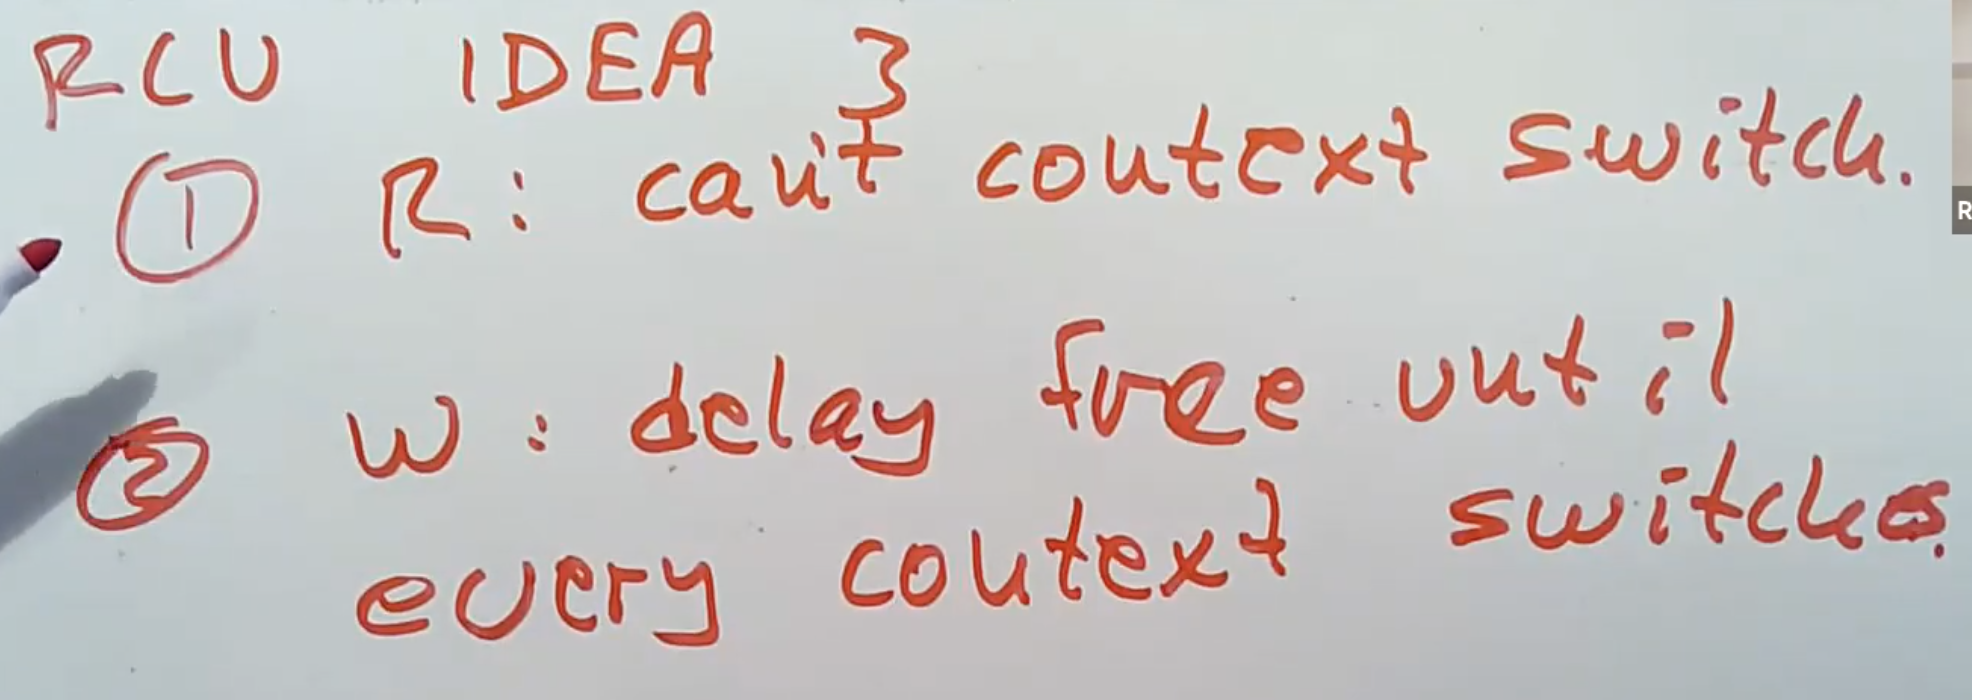 RCU IDEA 3
① R: can't context switch.
② W: delay free until
every context switches.
R